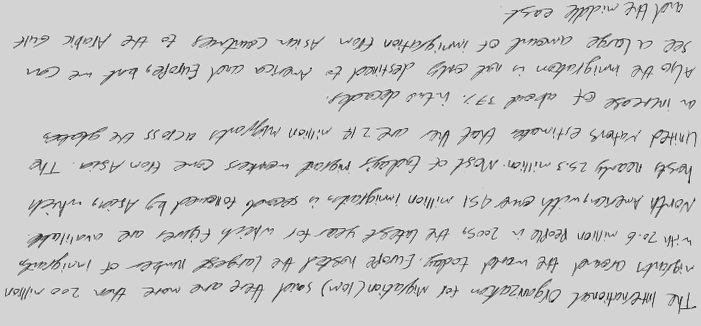 The International Organization for Migration (IOM) said there are more than 200 million
migrants around the world today. Europe hosted the largest number of immigrants,
with 70.6 million people in 2005, the latest year for which figures are available.
North America, with over 45.1 million immigrants, is second, followed by Asia, which
hosts nearly 25.3 million. Most of todays migrant workers come from Asia. The
United Nations estimates that there are 214 million migrants across the globe,
an increase of about 37% in two decades.
Also the immigration is not only destined to America and Europe, but we can
see a large amount of immigration from Asian countries to the Arabic Gulf
and the middle east.